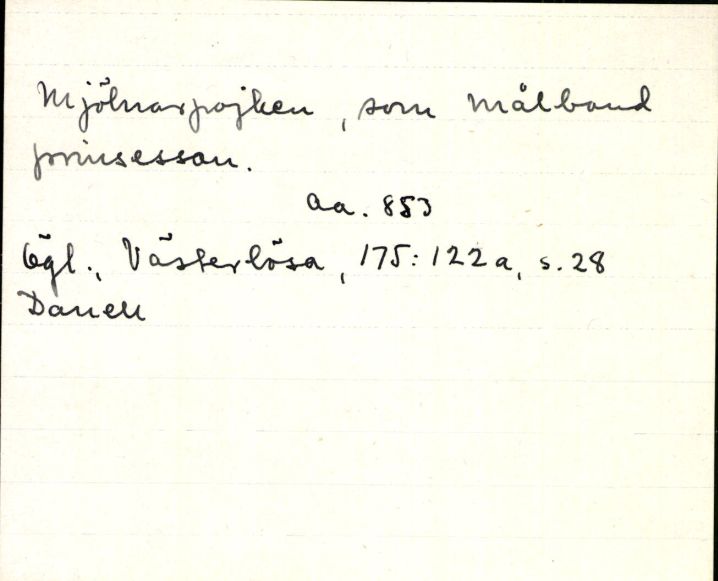 Mjölnarpojken, som målband
prinsessan.
aa. 853
Ögl., Västerlösa, 175:122a, s. 28
Danell